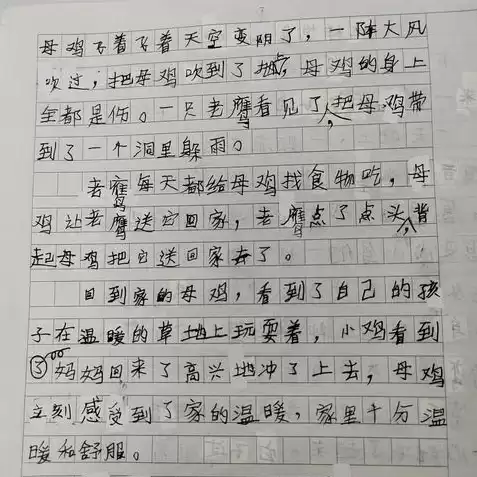 母鸡飞着飞着天空变阴了，一阵大风
吹过，把母鸡吹到了地，母鸡的身上
全都是伤。一只老鹰看见了，把母鸡带
到了一个洞里躲雨。
老鹰每天都给母鸡找食物吃，母
鸡让老鹰送它回家，老鹰点了点头，背
起母鸡把它送回家去了。
回到家的母鸡，看到了自己的孩
子在温暖的草地上玩耍着，小鸡看到
了妈妈回来了高兴地冲了上去，母鸡
立刻感受到了家的温暖，家里十分温
暖和舒服。